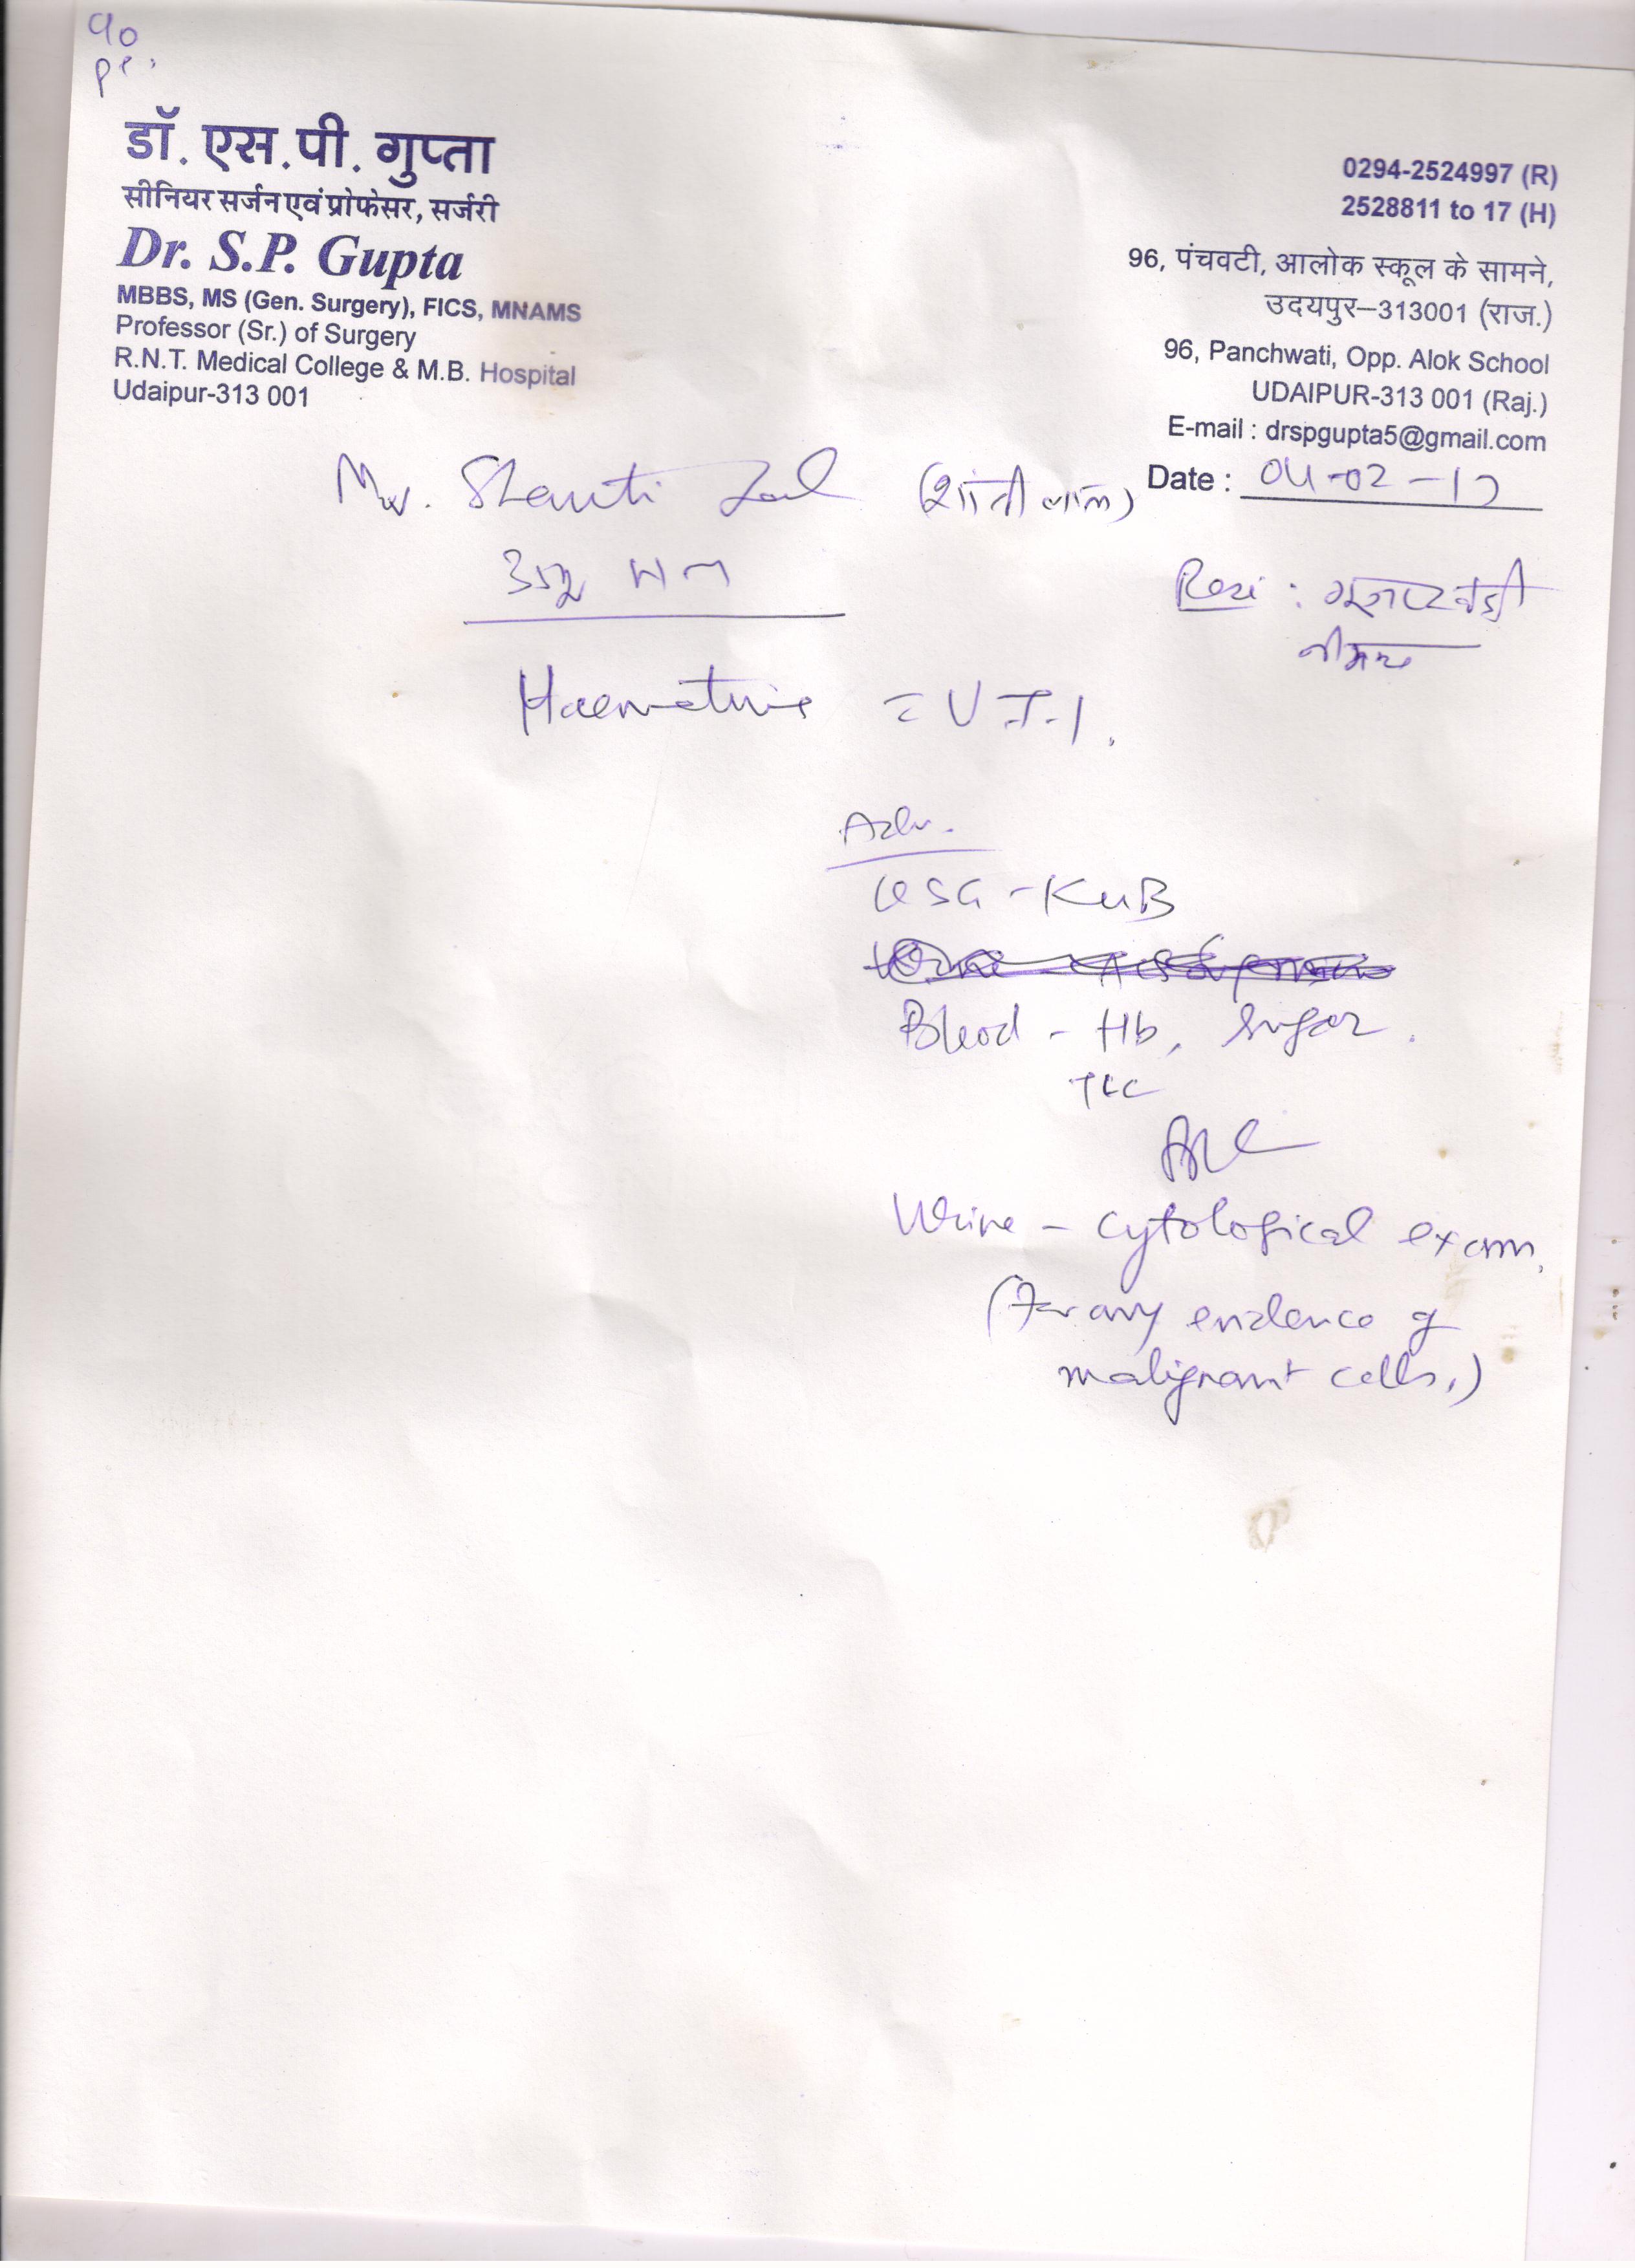 डॉ. एस.पी. गुप्ता
सीनियर सर्जन एवं प्रोफेसर, सर्जरी
Dr. S.P. Gupta
MBBS, MS (Gen. Surgery), FICS, MNAMS
Professor (Sr.) of Surgery
R.N.T. Medical College & M.B. Hospital
Udaipur-313 001
0294-2524997 (R)
2528811 to 17 (H)
96, पंचवटी, आलोक स्कूल के सामने,
उदयपुर–313001 (राज.)
96, Panchwati, Opp. Alok School
UDAIPUR-313 001 (Raj.)
E-mail : drspgupta5@gmail.com
Date : 04-02-
Mr. Shanti Lal (शांती लाल)
Resi :
Haematuria = U.T.I.
Adv.
USG - KUB
Blood - Hb, Sugar.
TLC
Urine - cytological exam.
(For any evidence of
malignant cells.)